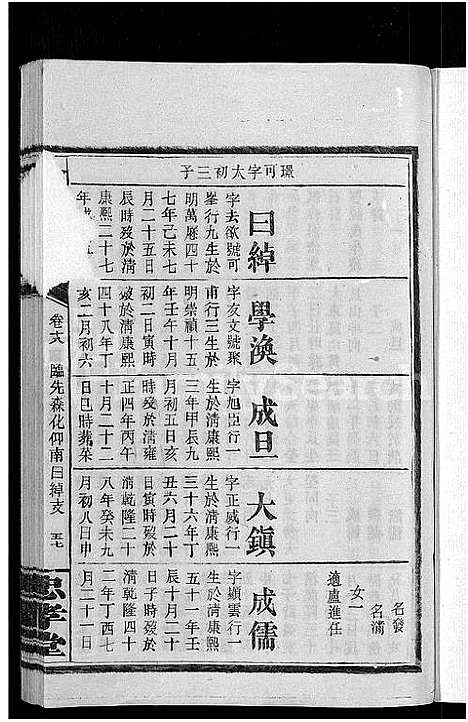 環可字太初三子
曰綽
字去欲號可
峯行九生於
明萬曆四十
七年己未七
月二十五日
辰時歿於清
康熙二十七
年
學渙
字友文號聚
甫行三生於
明崇禎十五
年壬午十月
初二日寅時
歿於清康熙
四十八年丁
亥二月初六
成旦
字旭臣行一
生於清康熙
三年甲辰九
月初五日亥
時歿於清雍
正四年丙午
十月二十二
日巳時葬菜
名發
名滿
女一
適盧進任
大鎮
字正威行一
生於清康熙
三十六年丁
丑六月二十
日寅時歿於
清乾隆二十
八年癸未九
月初八日申
成儒
字顯雲行一
生於清康熙
五十一年壬
辰十月二十
日子時歿於
清乾隆四十
二年丁酉七
月二十一日
卷十八 臨先森化仰南曰綽支 五七
忠孝堂